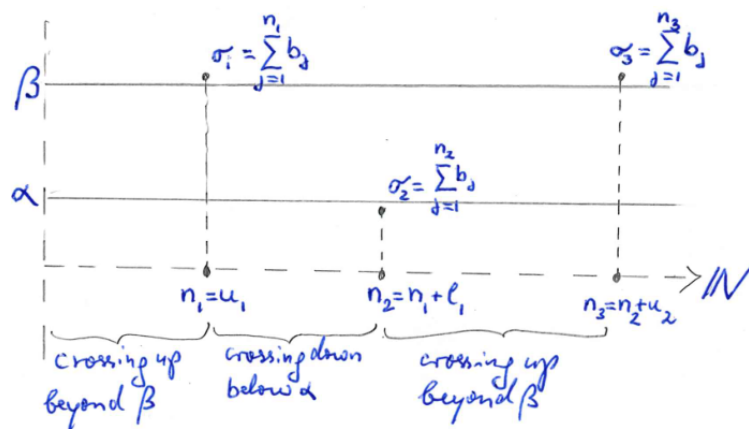 σ₁ = ∑_{j=1}^{n₁} b_j
σ₃ = ∑_{j=1}^{n₃} b_j
β
σ₂ = ∑_{j=1}^{n₂} b_j
α
ℕ
n₁ = u₁
n₂ = n₁ + ℓ₁
n₃ = n₂ + u₂
crossing up
beyond β
crossing down
below α
crossing up
beyond β